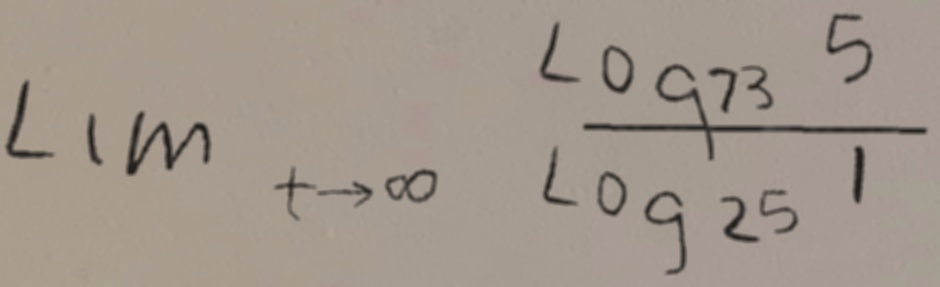 Lim t→∞ Log73 5 / Log25 1